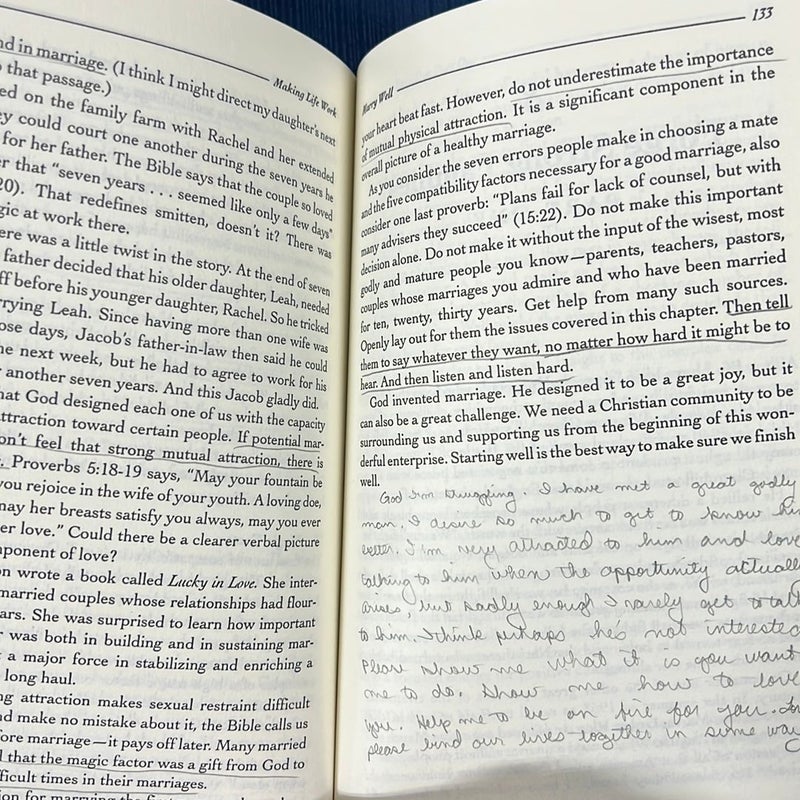 Making Life Work
nd in marriage. (I think I might direct my daughter's next
o that passage.)
ed on the family farm with Rachel and her extended
ey could court one another during the seven years he
for her father. The Bible says that the couple so loved
er that "seven years . . . seemed like only a few days"
20). That redefines smitten, doesn't it? There was
gic at work there.
ere was a little twist in the story. At the end of seven
father decided that his older daughter, Leah, needed
ff before his younger daughter, Rachel. So he tricked
rrying Leah. Since having more than one wife was
ose days, Jacob's father-in-law then said he could
he next week, but he had to agree to work for his
r another seven years. And this Jacob gladly did.
hat God designed each one of us with the capacity
attraction toward certain people. If potential mar-
on't feel that strong mutual attraction, there is
Proverbs 5:18-19 says, "May your fountain be
you rejoice in the wife of your youth. A loving doe,
may her breasts satisfy you always, may you ever
er love." Could there be a clearer verbal picture
mponent of love?
on wrote a book called Lucky in Love. She inter-
married couples whose relationships had flour-
ears. She was surprised to learn how important
r was both in building and in sustaining mar-
t a major force in stabilizing and enriching a
long haul.
ng attraction makes sexual restraint difficult
nd make no mistake about it, the Bible calls us
fore marriage—it pays off later. Many married
d that the magic factor was a gift from God to
fficult times in their marriages.
133
Marry Well
your heart beat fast. However, do not underestimate the importance
of mutual physical attraction. It is a significant component in the
overall picture of a healthy marriage.
As you consider the seven errors people make in choosing a mate
and the five compatibility factors necessary for a good marriage, also
consider one last proverb: "Plans fail for lack of counsel, but with
many advisers they succeed" (15:22). Do not make this important
decision alone. Do not make it without the input of the wisest, most
godly and mature people you know—parents, teachers, pastors,
couples whose marriages you admire and who have been married
for ten, twenty, thirty years. Get help from many such sources.
Openly lay out for them the issues covered in this chapter. Then tell
them to say whatever they want, no matter how hard it might be to
hear. And then listen and listen hard.
God invented marriage. He designed it to be a great joy, but it
can also be a great challenge. We need a Christian community to be
surrounding us and supporting us from the beginning of this won-
derful enterprise. Starting well is the best way to make sure we finish
well.
God I'm struggling. I have met a great godly
man. I desire so much to get to know him
better. I'm very attracted to him and love
talking to him when the opportunity actually
arises, but sadly enough I rarely get to talk
to him. I think perhaps he's not interested
Please show me what it is you want
me to do. Show me how to love
you. Help me to be on fire for you.
please bind our lives together in some way